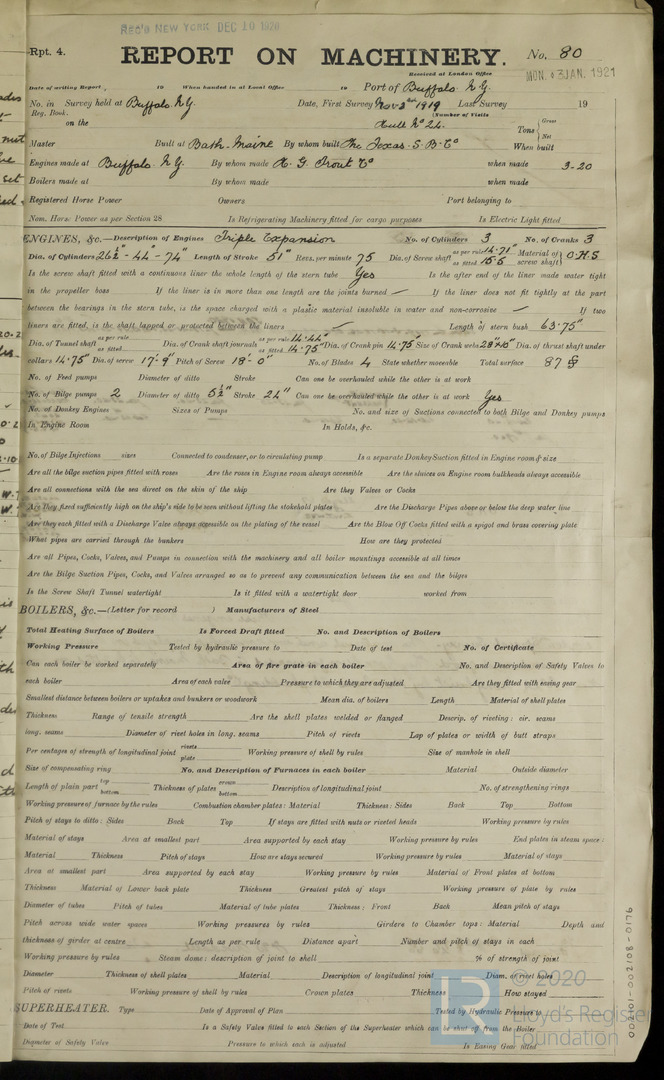 REC'D NEW YORK DEC 10 1920
Rpt. 4. REPORT ON MACHINERY. No. 80
Received at London Office MON. 03 JAN. 1921
Date of writing Report 19 When handed in at Local Office 19 Port of Buffalo N.Y.
No. in Survey held at Buffalo N.Y. Date, First Survey Nov 2nd 1919 Last Survey 19
Reg. Book. (Number of Visits
on the Hull No 24. Tons { Gross Net
Master Built at Bath-Maine By whom built The Texas. S. B. Co When built
Engines made at Buffalo N.Y. By whom made H. G. Trout Co when made 3-20
Boilers made at By whom made when made
Registered Horse Power Owners Port belonging to
Nom. Horse Power as per Section 28 Is Refrigerating Machinery fitted for cargo purposes Is Electric Light fitted
ENGINES, &c.—Description of Engines Triple Expansion No. of Cylinders 3 No. of Cranks 3
Dia. of Cylinders 26½"-44-74" Length of Stroke 51" Revs. per minute 75 Dia. of Screw shaft as per rule 14.71" as fitted 15.5 Material of screw shaft } O.H.S
Is the screw shaft fitted with a continuous liner the whole length of the stern tube Yes Is the after end of the liner made water tight
in the propeller boss If the liner is in more than one length are the joints burned — If the liner does not fit tightly at the part
between the bearings in the stern tube, is the space charged with a plastic material insoluble in water and non-corrosive — If two
liners are fitted, is the shaft lapped or protected between the liners — Length of stern bush 63.75"
Dia. of Tunnel shaft as per rule as fitted Dia. of Crank shaft journals as per rule 14.44" as fitted 14.75" Dia. of Crank pin 14.75 Size of Crank webs 28"x10" Dia. of thrust shaft under
collars 14.75" Dia. of screw 17'-9" Pitch of Screw 18'-0" No. of Blades 4 State whether moveable Total surface 87
No. of Feed pumps Diameter of ditto Stroke Can one be overhauled while the other is at work
No. of Bilge pumps 2 Diameter of ditto 5½" Stroke 24" Can one be overhauled while the other is at work Yes
No. of Donkey Engines Sizes of Pumps No. and size of Suctions connected to both Bilge and Donkey pumps
In Engine Room In Holds, &c.
No. of Bilge Injections sizes Connected to condenser, or to circulating pump Is a separate Donkey Suction fitted in Engine room & size
Are all the bilge suction pipes fitted with roses Are the roses in Engine room always accessible Are the sluices on Engine room bulkheads always accessible
Are all connections with the sea direct on the skin of the ship Are they Valves or Cocks
Are they fixed sufficiently high on the ship's side to be seen without lifting the stokehold plates Are the Discharge Pipes above or below the deep water line
Are they each fitted with a Discharge Valve always accessible on the plating of the vessel Are the Blow Off Cocks fitted with a spigot and brass covering plate
What pipes are carried through the bunkers How are they protected
Are all Pipes, Cocks, Valves, and Pumps in connection with the machinery and all boiler mountings accessible at all times
Are the Bilge Suction Pipes, Cocks, and Valves arranged so as to prevent any communication between the sea and the bilges
Is the Screw Shaft Tunnel watertight Is it fitted with a watertight door worked from
BOILERS, &c.—(Letter for record ) Manufacturers of Steel
Total Heating Surface of Boilers Is Forced Draft fitted No. and Description of Boilers
Working Pressure Tested by hydraulic pressure to Date of test No. of Certificate
Can each boiler be worked separately Area of fire grate in each boiler No. and Description of Safety Valves to
each boiler Area of each valve Pressure to which they are adjusted Are they fitted with easing gear
Smallest distance between boilers or uptakes and bunkers or woodwork Mean dia. of boilers Length Material of shell plates
Thickness Range of tensile strength Are the shell plates welded or flanged Descrip. of riveting: cir. seams
long. seams Diameter of rivet holes in long. seams Pitch of rivets Lap of plates or width of butt straps
Per centages of strength of longitudinal joint rivets plate Working pressure of shell by rules Size of manhole in shell
Size of compensating ring No. and Description of Furnaces in each boiler Material Outside diameter
Length of plain part top bottom Thickness of plates crown bottom Description of longitudinal joint No. of strengthening rings
Working pressure of furnace by the rules Combustion chamber plates: Material Thickness: Sides Back Top Bottom
Pitch of stays to ditto: Sides Back Top If stays are fitted with nuts or riveted heads Working pressure by rules
Material of stays Area at smallest part Area supported by each stay Working pressure by rules End plates in steam space:
Material Thickness Pitch of stays How are stays secured Working pressure by rules Material of stays
Area at smallest part Area supported by each stay Working pressure by rules Material of Front plates at bottom
Thickness Material of Lower back plate Thickness Greatest pitch of stays Working pressure of plate by rules
Diameter of tubes Pitch of tubes Material of tube plates Thickness: Front Back Mean pitch of stays
Pitch across wide water spaces Working pressures by rules Girders to Chamber tops: Material Depth and
thickness of girder at centre Length as per rule Distance apart Number and pitch of stays in each
Working pressure by rules Steam dome: description of joint to shell % of strength of joint
Diameter Thickness of shell plates Material Description of longitudinal joint Diam. of rivet holes
Pitch of rivets Working pressure of shell by rules Crown plates Thickness How stayed
SUPERHEATER. Type Date of Approval of Plan Tested by Hydraulic Pressure to
Date of Test Is a Safety Valve fitted to each Section of the Superheater which can be shut off from the Boiler
Diameter of Safety Valve Pressure to which each is adjusted Is Easing Gear fitted
© 2020
Lloyd's Register
Foundation
002101-002108-0176